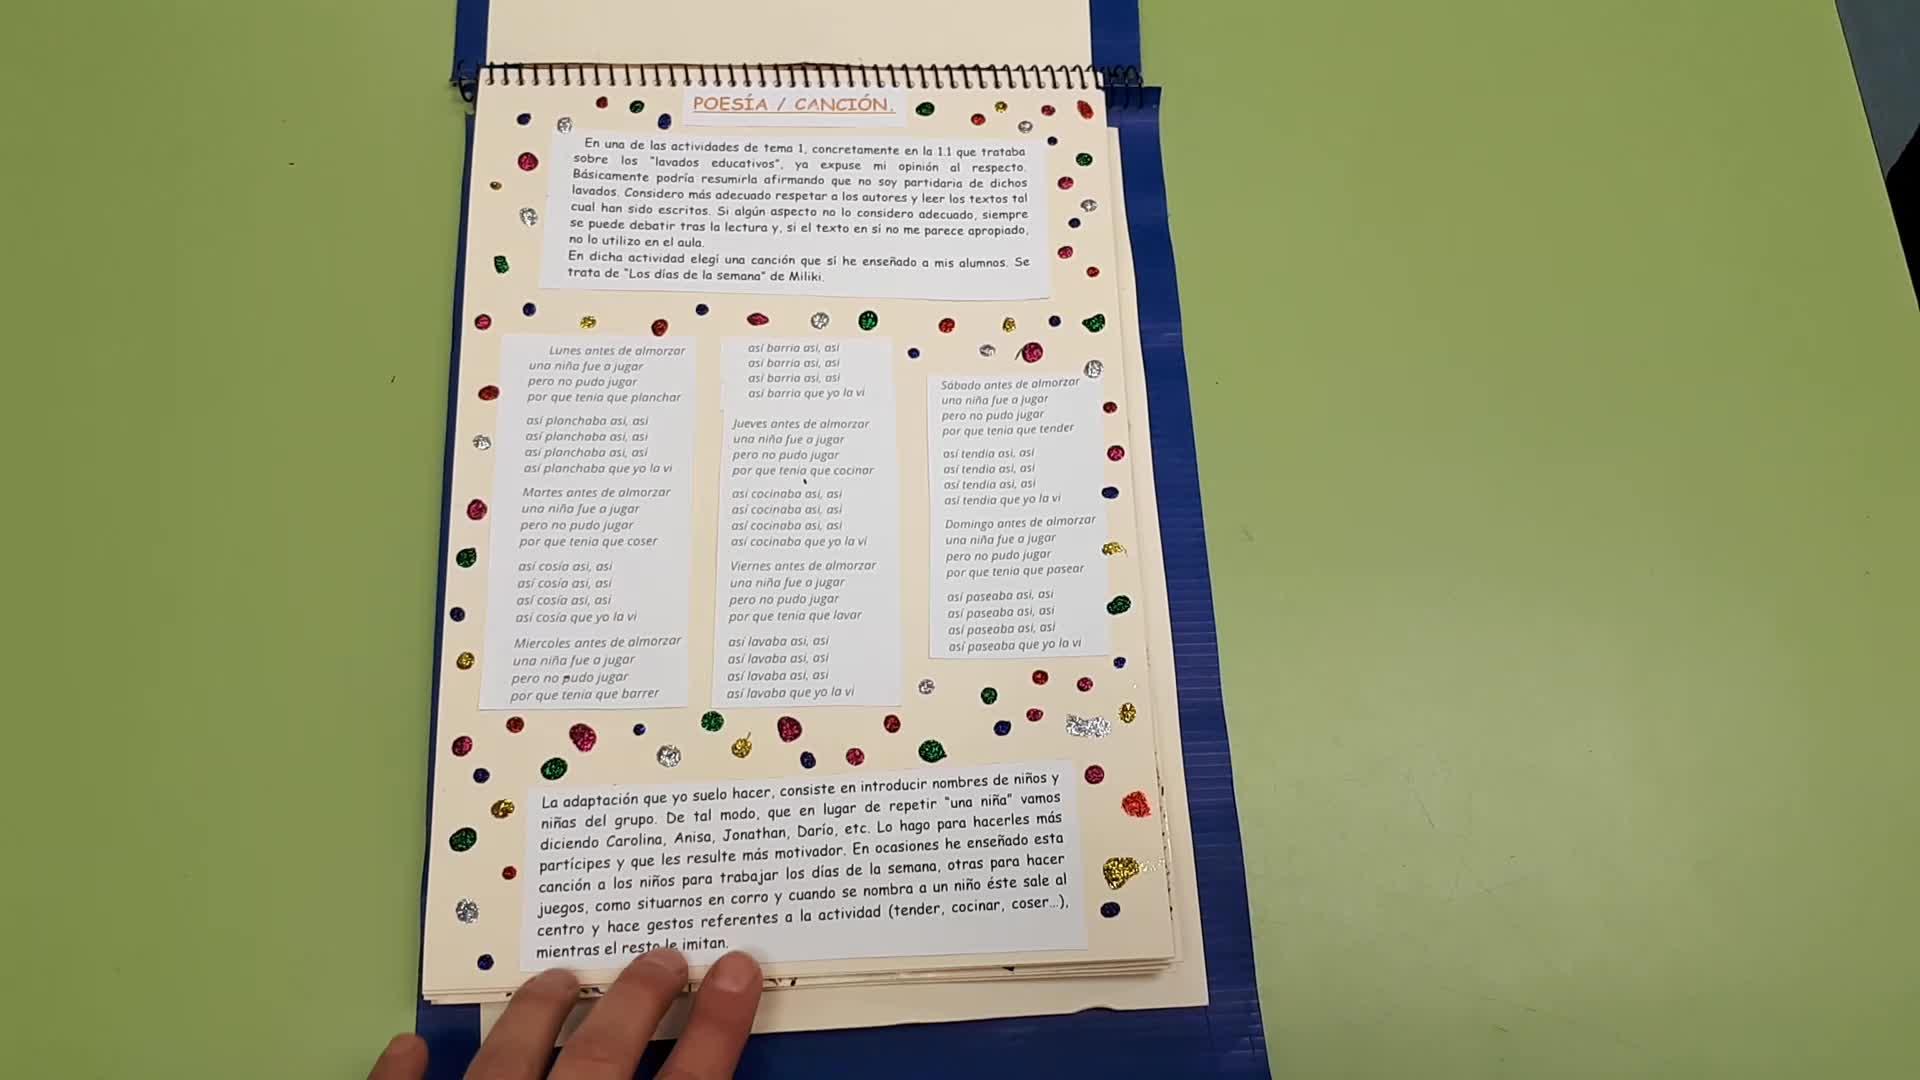 POESÍA / CANCIÓN.
En una de las actividades de tema 1, concretamente en la 1.1 que trataba
sobre los "lavados educativos", ya expuse mi opinión al respecto.
Básicamente podría resumirla afirmando que no soy partidaria de dichos
lavados. Considero más adecuado respetar a los autores y leer los textos tal
cual han sido escritos. Si algún aspecto no lo considero adecuado, siempre
se puede debatir tras la lectura y, si el texto en sí no me parece apropiado,
no lo utilizo en el aula.
En dicha actividad elegí una canción que sí he enseñado a mis alumnos. Se
trata de "Los días de la semana" de Miliki.
Lunes antes de almorzar
una niña fue a jugar
pero no pudo jugar
por que tenia que planchar
así planchaba asi, asi
así planchaba asi, asi
así planchaba asi, asi
así planchaba que yo la vi
Martes antes de almorzar
una niña fue a jugar
pero no pudo jugar
por que tenia que coser
así cosía asi, asi
así cosía asi, asi
así cosía asi, asi
así cosía que yo la vi
Miercoles antes de almorzar
una niña fue a jugar
pero no pudo jugar
por que tenia que barrer
así barria asi, asi
así barria asi, asi
así barria asi, asi
así barria que yo la vi
Jueves antes de almorzar
una niña fue a jugar
pero no pudo jugar
por que tenia que cocinar
así cocinaba asi, asi
así cocinaba asi, asi
así cocinaba asi, asi
así cocinaba que yo la vi
Viernes antes de almorzar
una niña fue a jugar
pero no pudo jugar
por que tenia que lavar
así lavaba asi, asi
así lavaba asi, asi
así lavaba asi, asi
así lavaba que yo la vi
Sábado antes de almorzar
una niña fue a jugar
pero no pudo jugar
por que tenia que tender
así tendia asi, asi
así tendia asi, asi
así tendia asi, asi
así tendia que yo la vi
Domingo antes de almorzar
una niña fue a jugar
pero no pudo jugar
por que tenia que pasear
así paseaba asi, asi
así paseaba asi, asi
así paseaba asi, asi
así paseaba que yo la vi
La adaptación que yo suelo hacer, consiste en introducir nombres de niños y
niñas del grupo. De tal modo, que en lugar de repetir "una niña" vamos
diciendo Carolina, Anisa, Jonathan, Darío, etc. Lo hago para hacerles más
partícipes y que les resulte más motivador. En ocasiones he enseñado esta
canción a los niños para trabajar los días de la semana, otras para hacer
juegos, como situarnos en corro y cuando se nombra a un niño éste sale al
centro y hace gestos referentes a la actividad (tender, cocinar, coser...),
mientras el resto le imitan.